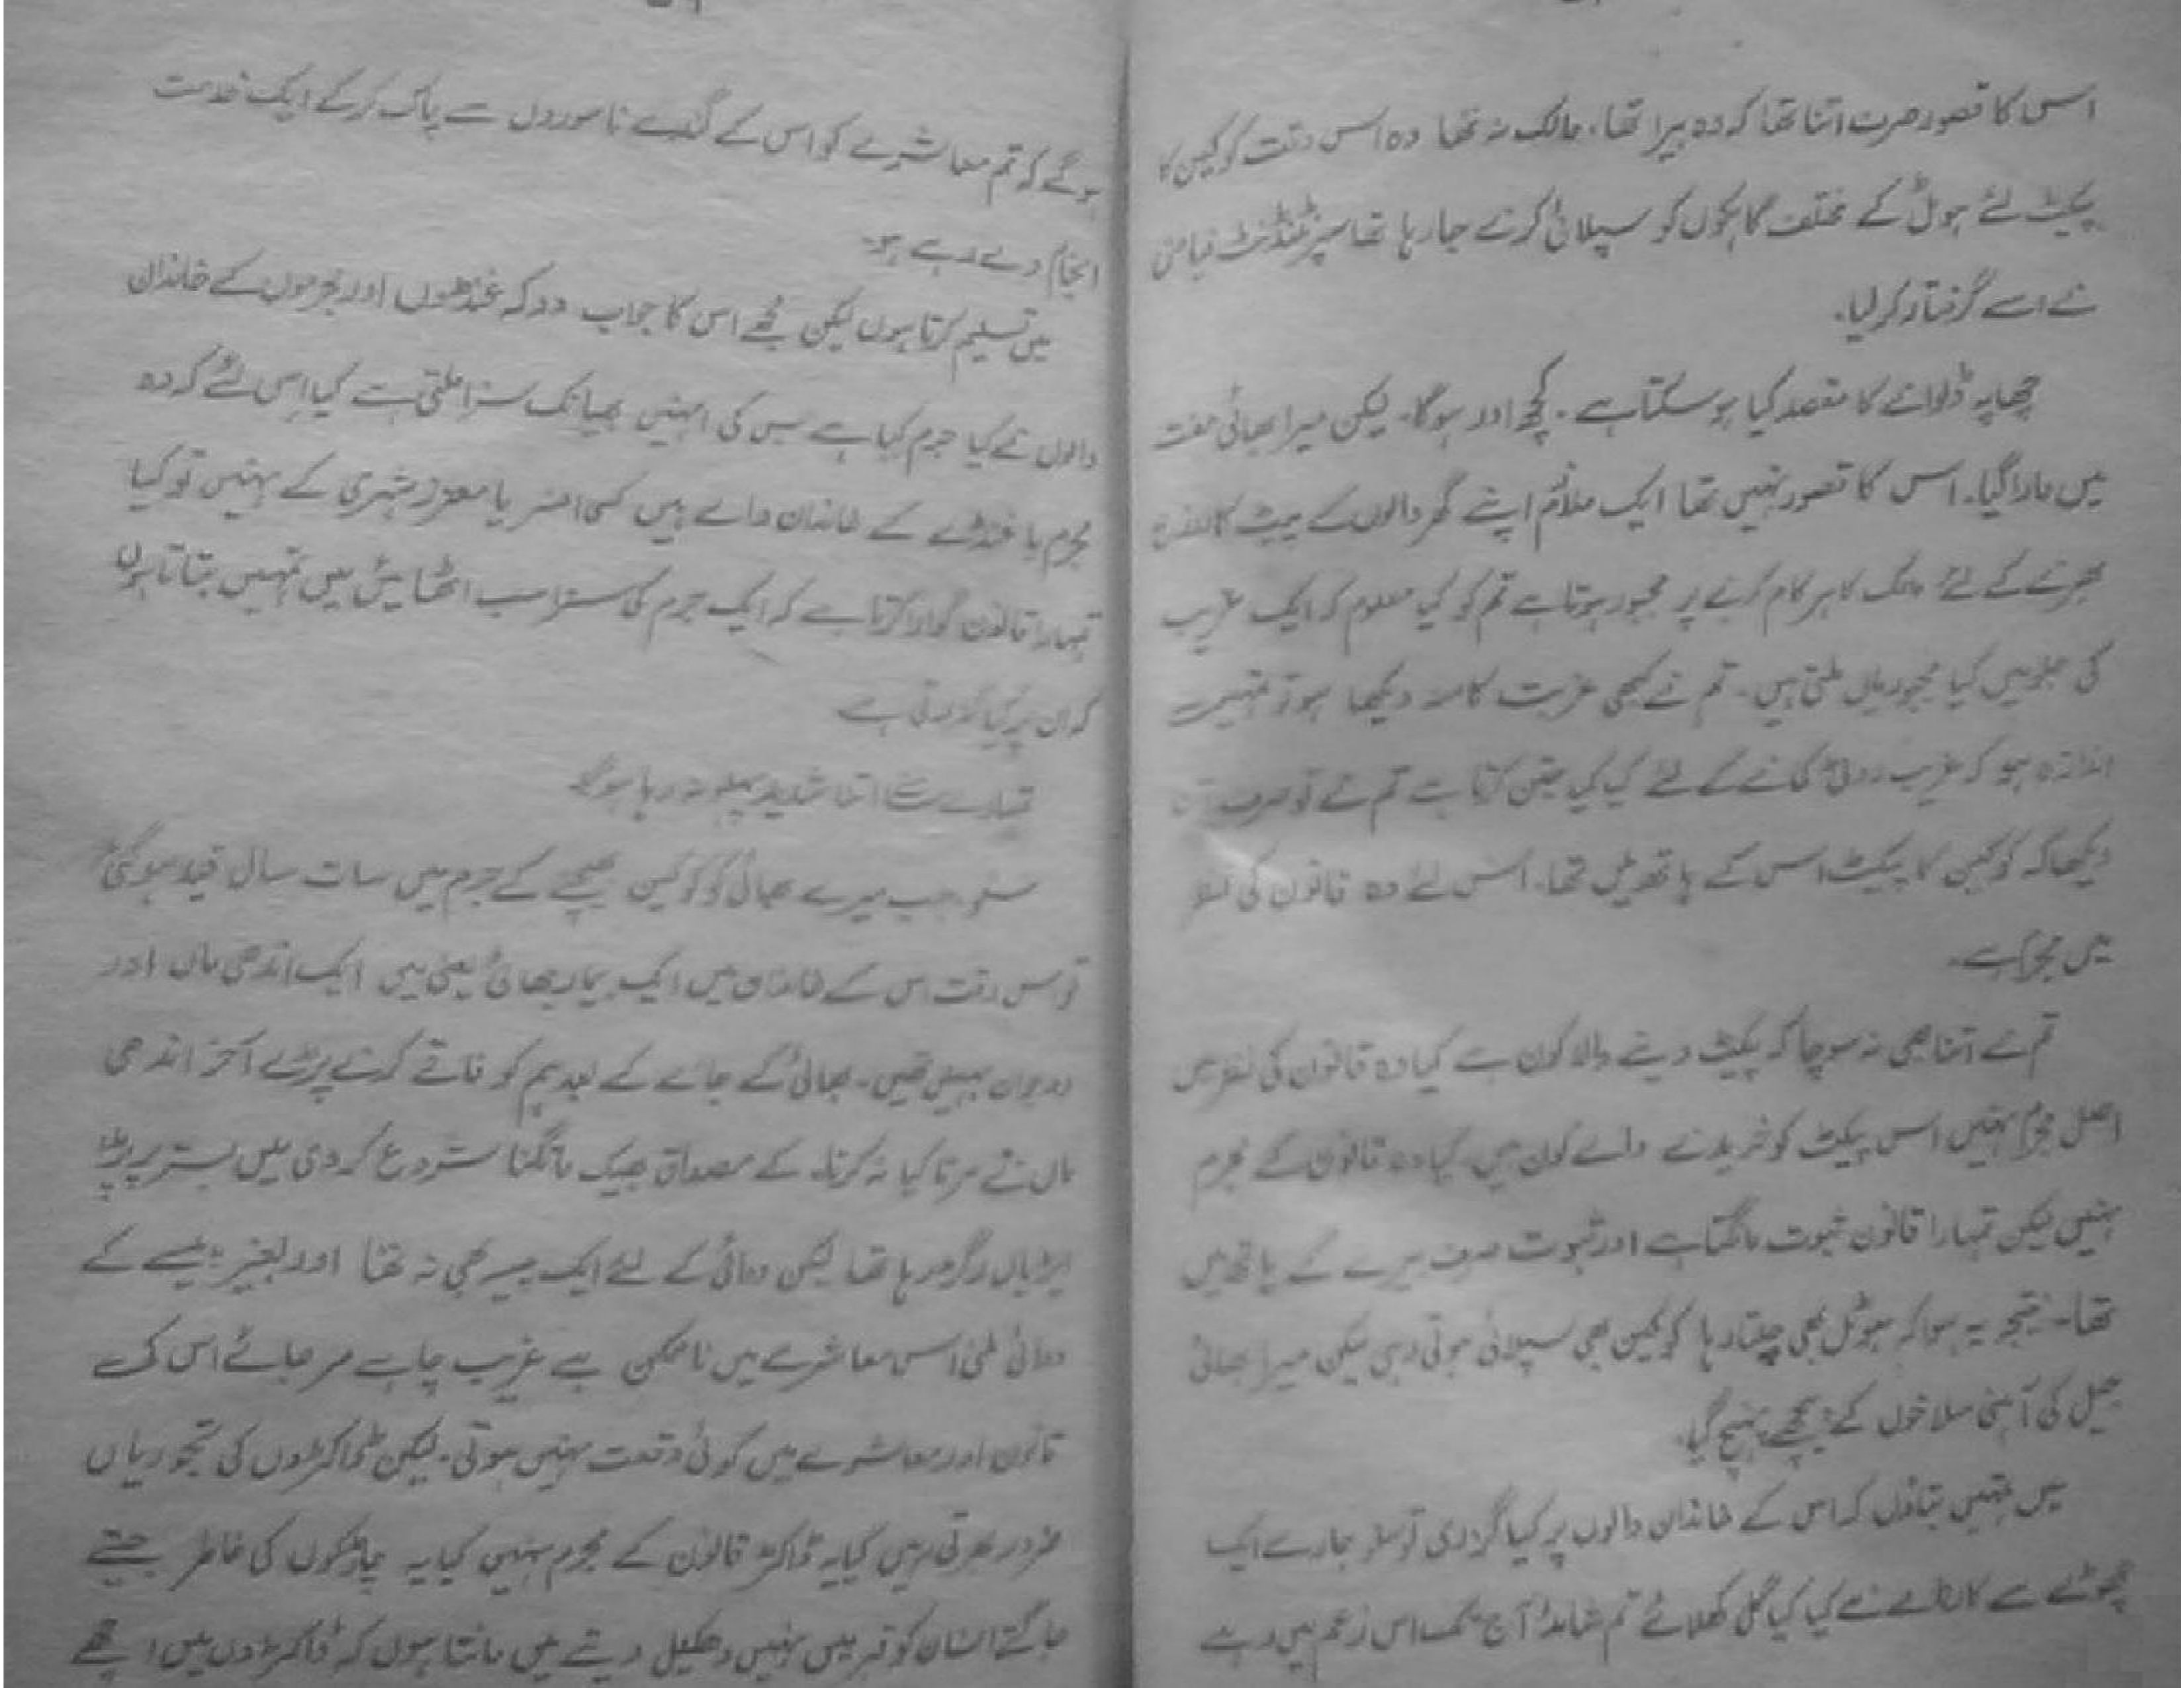 اس کا قصور صرف اتنا تھا کہ وہ بیرا تھا۔ مالک نہ تھا وہ اس وقت کوکین کا
پیکٹ لئے ہوٹل کے مختلف گاہکوں کو سپلائی کرنے جا رہا تھا سپرنٹنڈنٹ فیاض
نے اسے گرفتار کر لیا۔
چھاپہ ڈلوانے کا مقصد کیا ہو سکتا ہے۔ کچھ اور ہوگا۔ لیکن میرا بھائی مفت
میں مارا گیا۔ اس کا قصور نہیں تھا ایک ملازم اپنے گھر والوں کے پیٹ کا
بھرنے کے لئے مالک کا ہر کام کرنے پر مجبور ہوتا ہے تم کو کیا معلوم کہ ایک غریب
کی جلو میں کیا مجبوریاں ملتی ہیں۔ تم نے کبھی غربت کا منہ دیکھا ہو تو تمہیں
اندازہ ہو کہ غریب روٹی کمانے کے لئے کیا کیا جتن کرتا ہے تم نے تو صرف اتنا
دیکھا کہ کوکین کا پیکٹ اس کے ہاتھ میں تھا۔ اس لئے وہ قانون کی نظر
میں مجرم ہے۔
تم نے اتنا بھی نہ سوچا کہ پیکٹ دینے والا کون ہے کیا وہ قانون کی نظر میں
اصل مجرم نہیں اس پیکٹ کو خریدنے والے کون ہیں۔ کیا وہ قانون کے مجرم
نہیں لیکن تمہارا قانون ثبوت مانگتا ہے اور ثبوت صرف بیرے کے ہاتھ میں
تھا۔ نتیجہ یہ ہوا کہ ہوٹل بھی چلتا رہا کوکین بھی سپلائی ہوتی رہی لیکن میرا بھائی
جیل کی آہنی سلاخوں کے پیچھے پہنچ گیا۔
میں تمہیں بتاؤں کہ اس کے خاندان والوں پر کیا گزری تو سنو تمہارے ایک
چھوٹے سے کارنامے نے کیا کیا گل کھلائے تم شاید آج تک اس زعم میں رہے
ہوگے کہ تم معاشرے کو اس کے گندے ناسوروں سے پاک کر کے ایک خدمت
انجام دے رہے ہو۔
میں تسلیم کرتا ہوں لیکن مجھے اس کا جواب دو کہ غنڈوں اور مجرموں کے خاندان
والوں نے کیا جرم کیا ہے جس کی انہیں بھیانک سزا ملتی ہے کیا اس لئے کہ وہ
مجرم یا غنڈے کے خاندان والے ہیں کسی افسر یا معزز شہری کے نہیں تو کیا
تمہارا قانون گوارا کرتا ہے کہ ایک جرم کی سزا سب اٹھائیں میں تمہیں بتاتا ہوں
کہ ان پر کیا گزرتی ہے
تمہارے سامنے اتنا شدید پہلو نہ رہا ہوگا
سنو۔ جب میرے بھائی کو کوکین بیچنے کے جرم میں سات سال قید ہو گئی
تو اس وقت اس کے خاندان میں ایک بیمار بھائی یعنی میں ایک اندھی ماں اور
دو جوان بہنیں تھیں۔ بھائی کے جانے کے بعد ہم کو فاقے کرنے پڑے آخر اندھی
ماں نے مرتا کیا نہ کرتا۔ کے مصداق بھیک مانگنا شروع کر دی میں بستر پر پڑا
ایڑیاں رگڑ رہا تھا لیکن دوائی کے لئے ایک پیسہ بھی نہ تھا اور بغیر پیسے کے
دوائی ملنی اس معاشرے میں ناممکن ہے غریب چاہے مر جائے اس کی
قانون اور معاشرے میں کوئی وقعت نہیں ہوتی۔ لیکن ڈاکٹروں کی تجوریاں
ضرور بھرتی رہیں کیا یہ ڈاکٹر قانون کے مجرم نہیں کیا یہ چار ٹکوں کی خاطر جیتے
جاگتے انسان کو قبر میں نہیں دھکیل دیتے میں مانتا ہوں کہ ڈاکٹروں میں اچھے